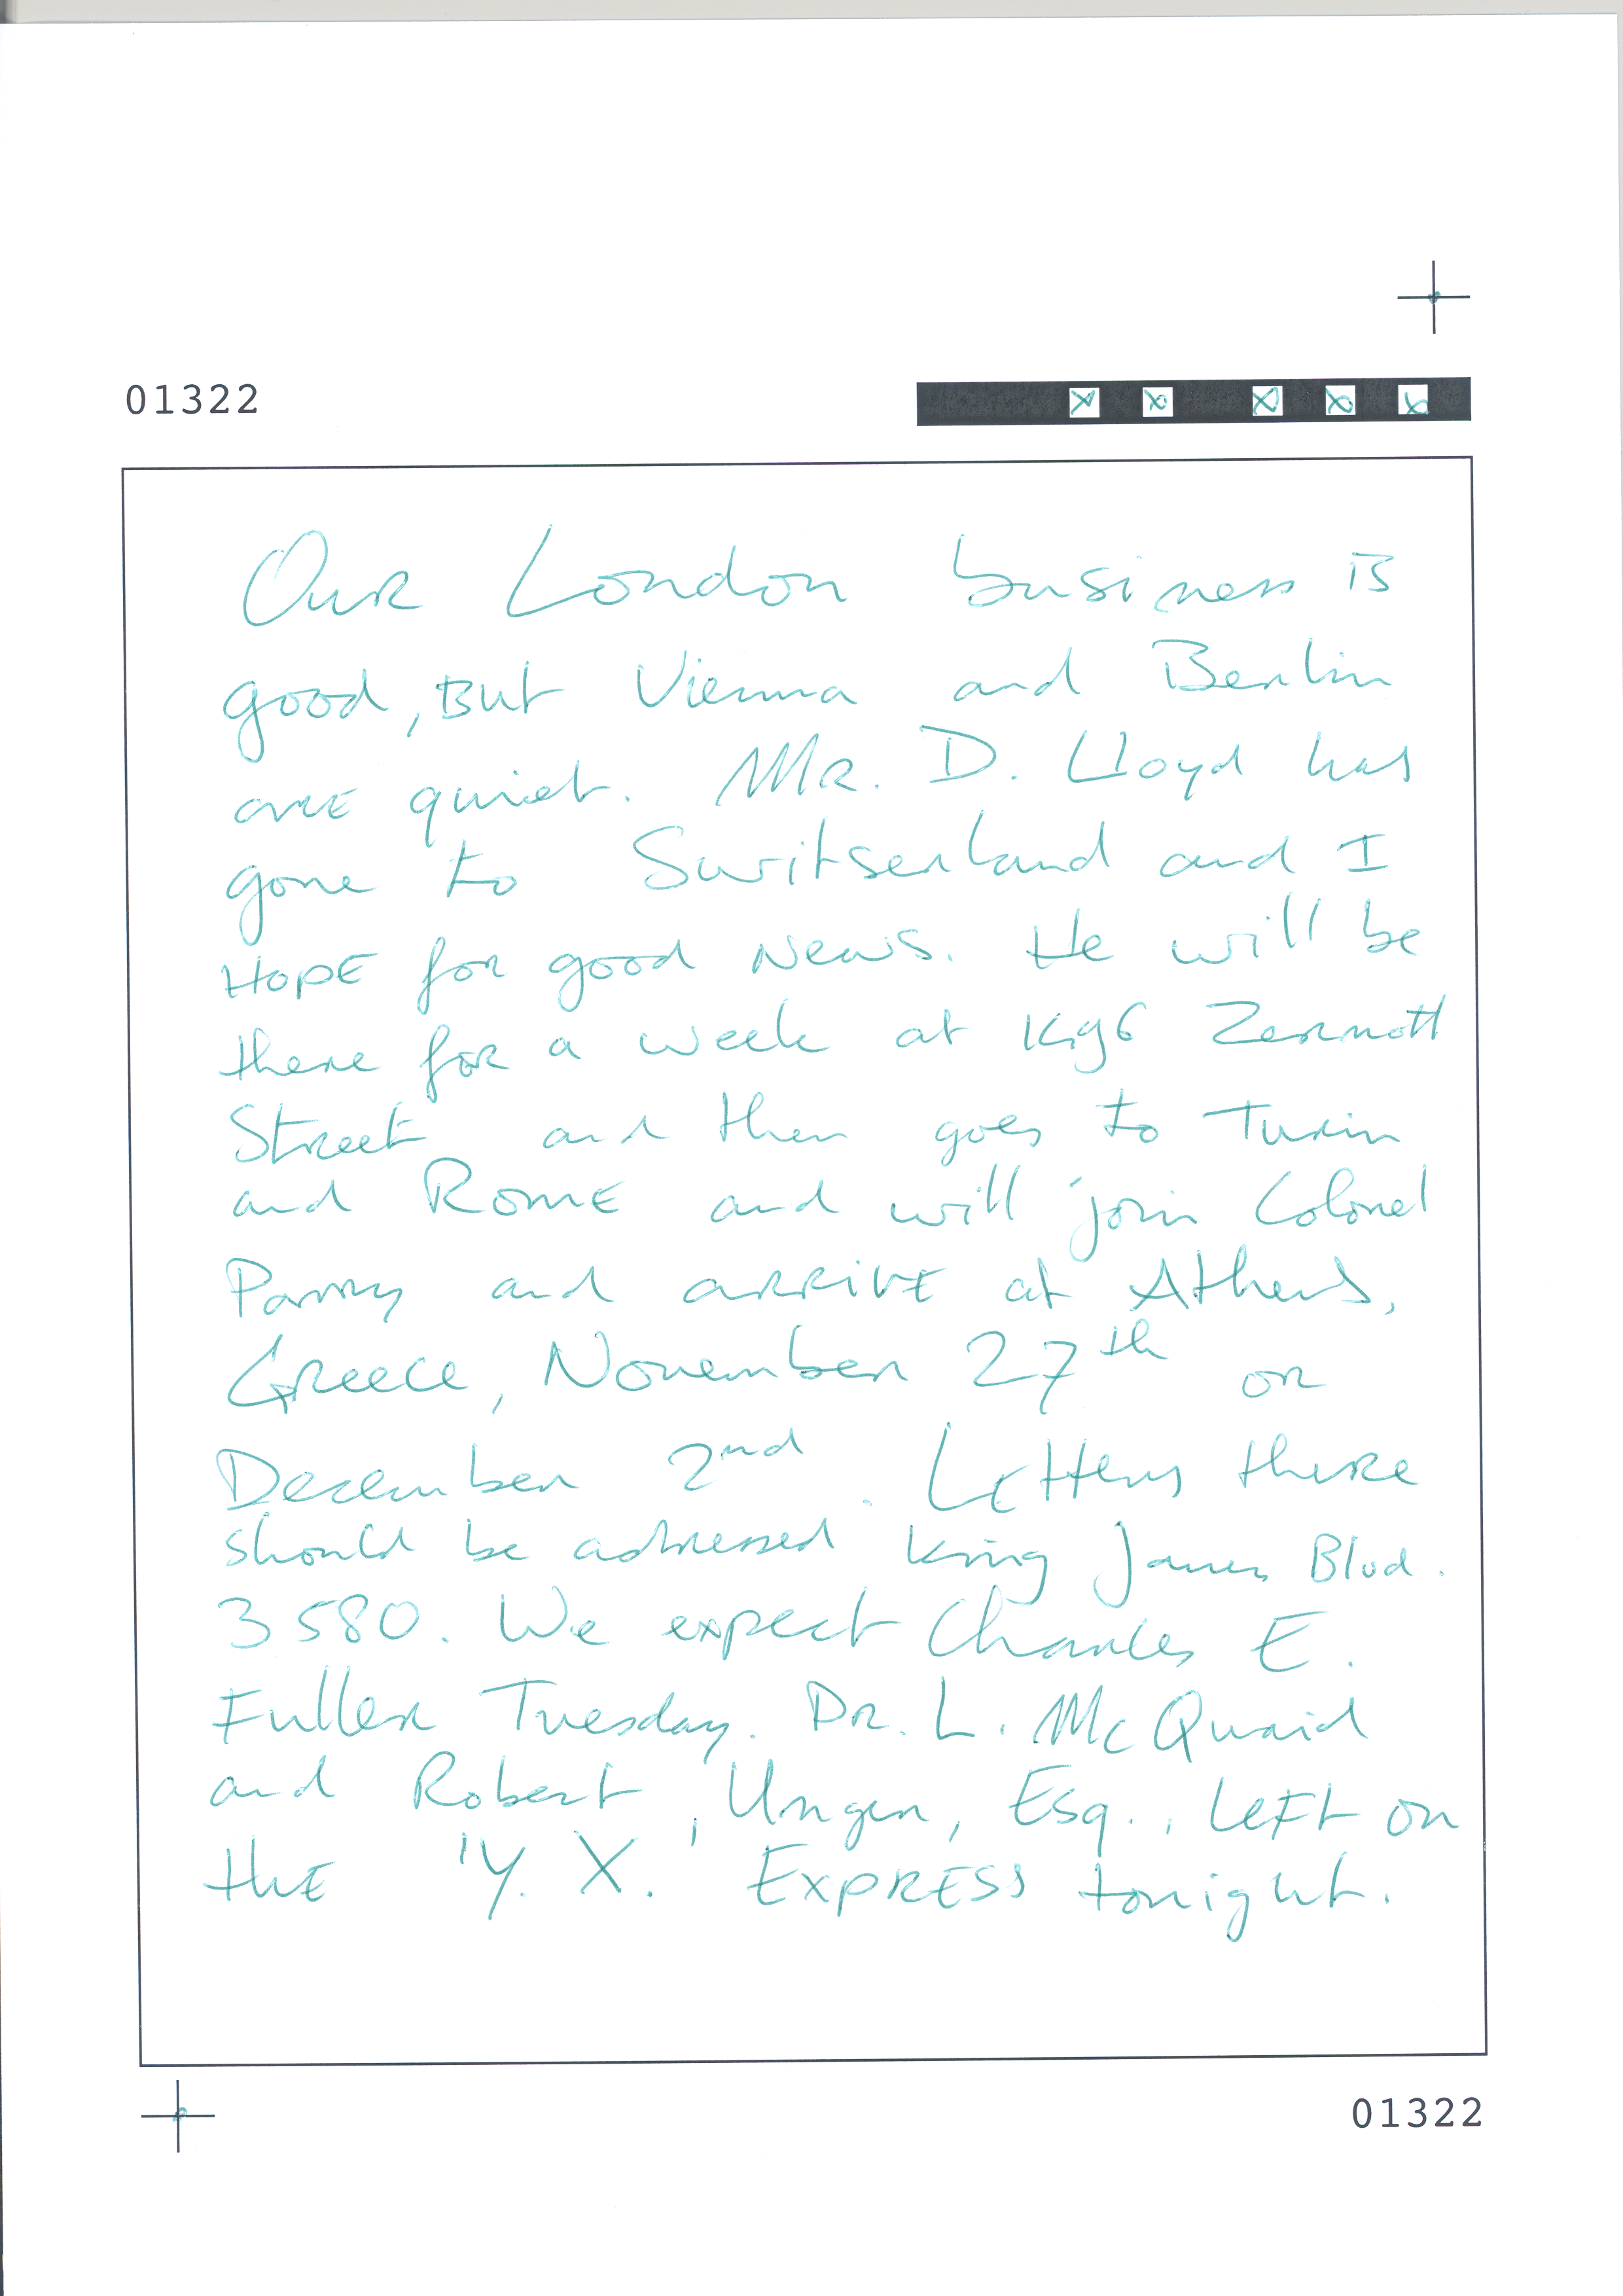 01322
Our London business is
good, But Vienna and Berlin
are quiet. Mr. D. Lloyd has
gone to Switserland and I
Hope for good News. He will be
there for a week at Zermott
Street and then goes to Turin
and Rome and will join Colonel
Parry and arrive at Athens,
Greece, November 27th or
December 2nd. Letters there
should be adressed King James Blvd.
3580. We expect Charles E.
Fuller Tuesday. Dr. L. McQuaid
and Robert, Unger, Esq., Left on
the 'Y. X.' Express tonight.
01322